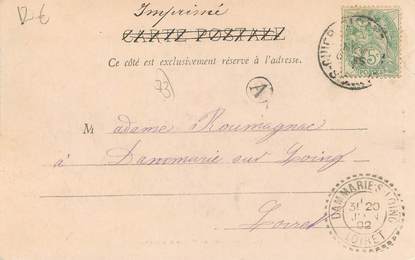 12 €
Imprimé
CARTE POSTALE
Ce côté est exclusivement réservé à l'adresse.
73
A
5
Madame Roumagnac
à Dammarie sur Loing
Loiret
DAMMARIE-S-LOING
20
02
LOIRET